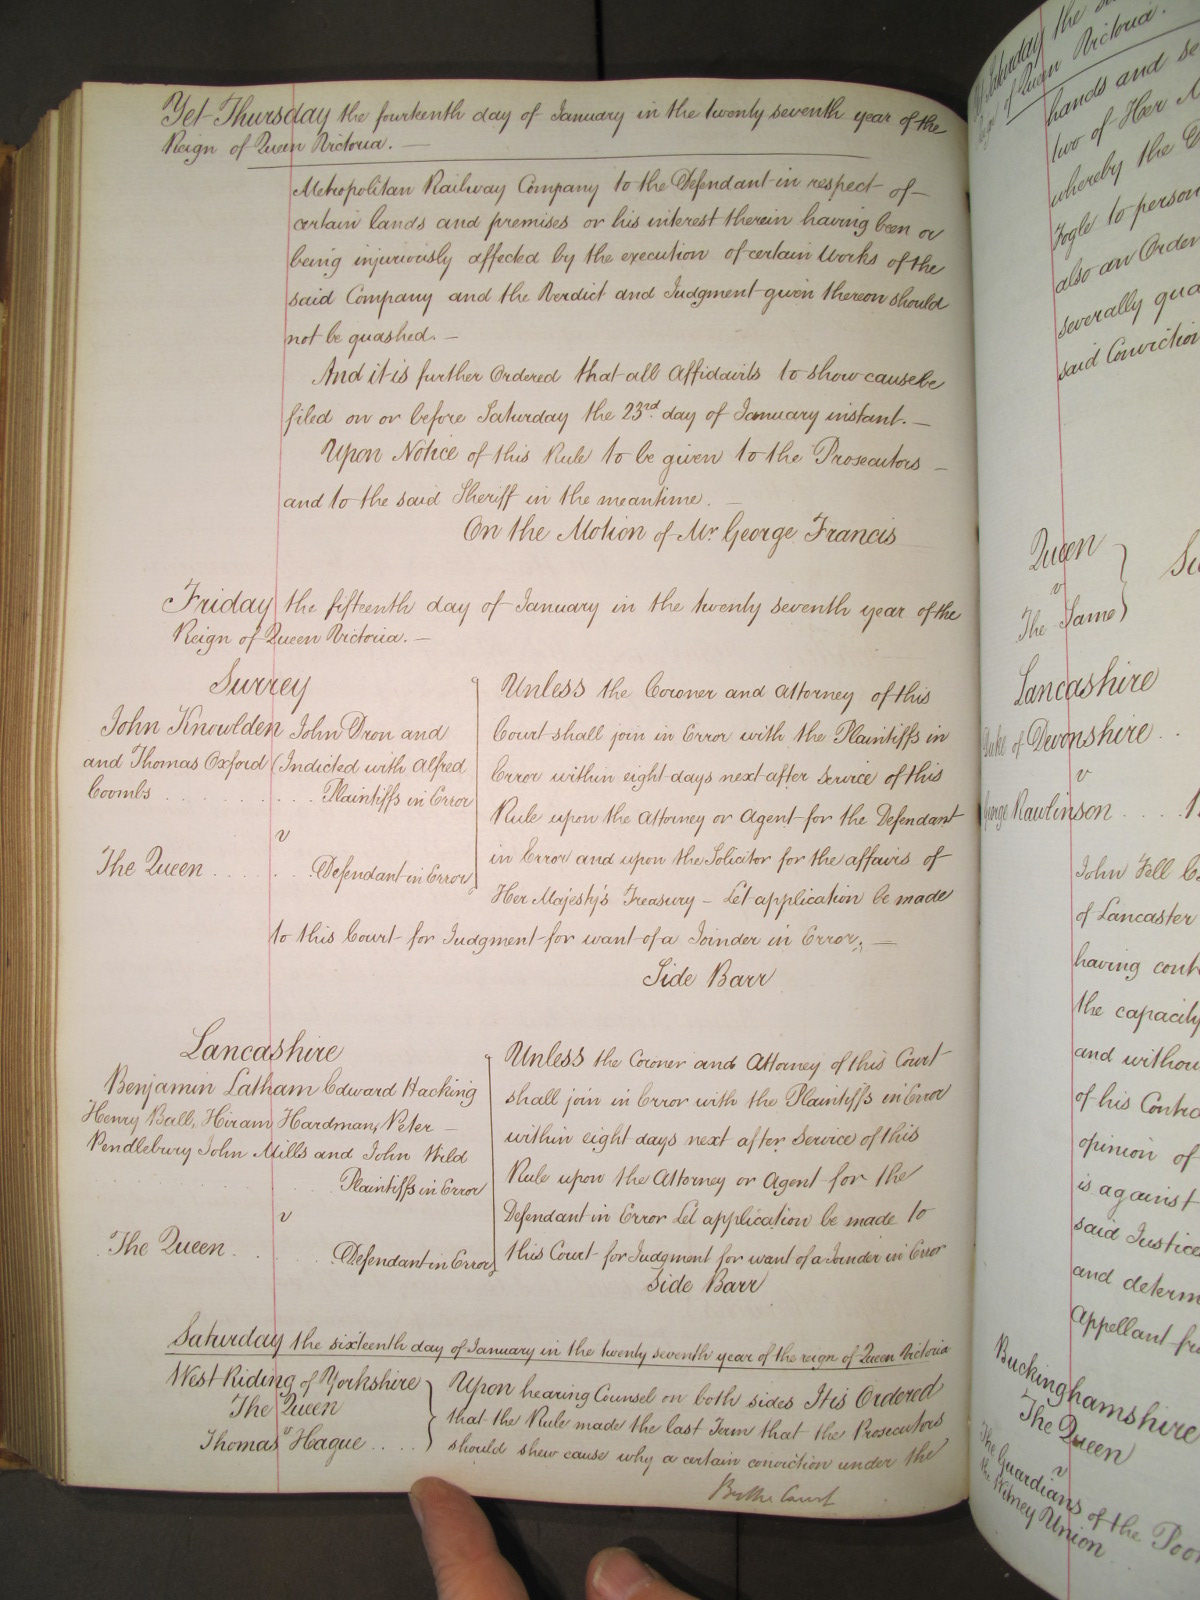 Yet Thursday the fourteenth day of January in the twenty seventh year of the
Reign of Queen Victoria. —
Metropolitan Railway Company to the Defendant in respect of —
certain lands and premises or his interest therein having been or
being injuriously affected by the execution of certain Works of the
said Company and the Verdict and Judgment given thereon should
not be quashed. —
And it is further Ordered that all Affidavits to show cause be
filed on or before Saturday the 23rd day of January instant. —
Upon Notice of this Rule to be given to the Prosecutors —
and to the said Sheriff in the meantime. —
On the Motion of Mr George Francis
Friday the fifteenth day of January in the twenty seventh year of the
Reign of Queen Victoria. —
Surrey
John Knowlden John Dron and
and Thomas Oxford (Indicted with Alfred
Coombs . . . . . . . . . . . Plaintiffs in Error
v
The Queen . . . . . . . Defendant in Error
Unless the Coroner and Attorney of this
Court shall join in Error with the Plaintiffs in
Error within eight days next after Service of this
Rule upon the Attorney or Agent for the Defendant
in Error and upon the Solicitor for the affairs of
Her Majesty's Treasury — Let application be made
to this Court for Judgment for want of a Joinder in Error. —
Side Barr
Lancashire
Benjamin Latham Edward Hacking
Henry Ball, Hiram Hardman, Peter —
Pendlebury John Mills and John Wild
Plaintiffs in Error
v
The Queen . . . . Defendant in Error
Unless the Coroner and Attorney of this Court
shall join in Error with the Plaintiffs in Error
within eight days next after Service of this
Rule upon the Attorney or Agent for the
Defendant in Error Let application be made to
this Court for Judgment for want of a Joinder in Error
Side Barr
Saturday the sixteenth day of January in the twenty seventh year of the reign of Queen Victoria
West Riding of Yorkshire
The Queen
v
Thomas Hague . . . .
Upon hearing Counsel on both sides It is Ordered
that the Rule made the last Term that the Prosecutors
should shew cause why a certain conviction under the
By the Court
Saturday the
of Queen Victoria.
hands and se
two of Her M
whereby the D
Fogle to person
also an Order
severally qua
said Conviction
Queen
v
The Same
Lancashire
Duke of Devonshire . .
v
George Rawlinson . . . .
John Fell
of Lancaster
having cont
the capacity
and withou
of his Contra
opinion of
is against
said Justice
and determ
Appellant fr
Buckinghamshire
The Queen
v
The Guardians of the Poor
the Witney Union